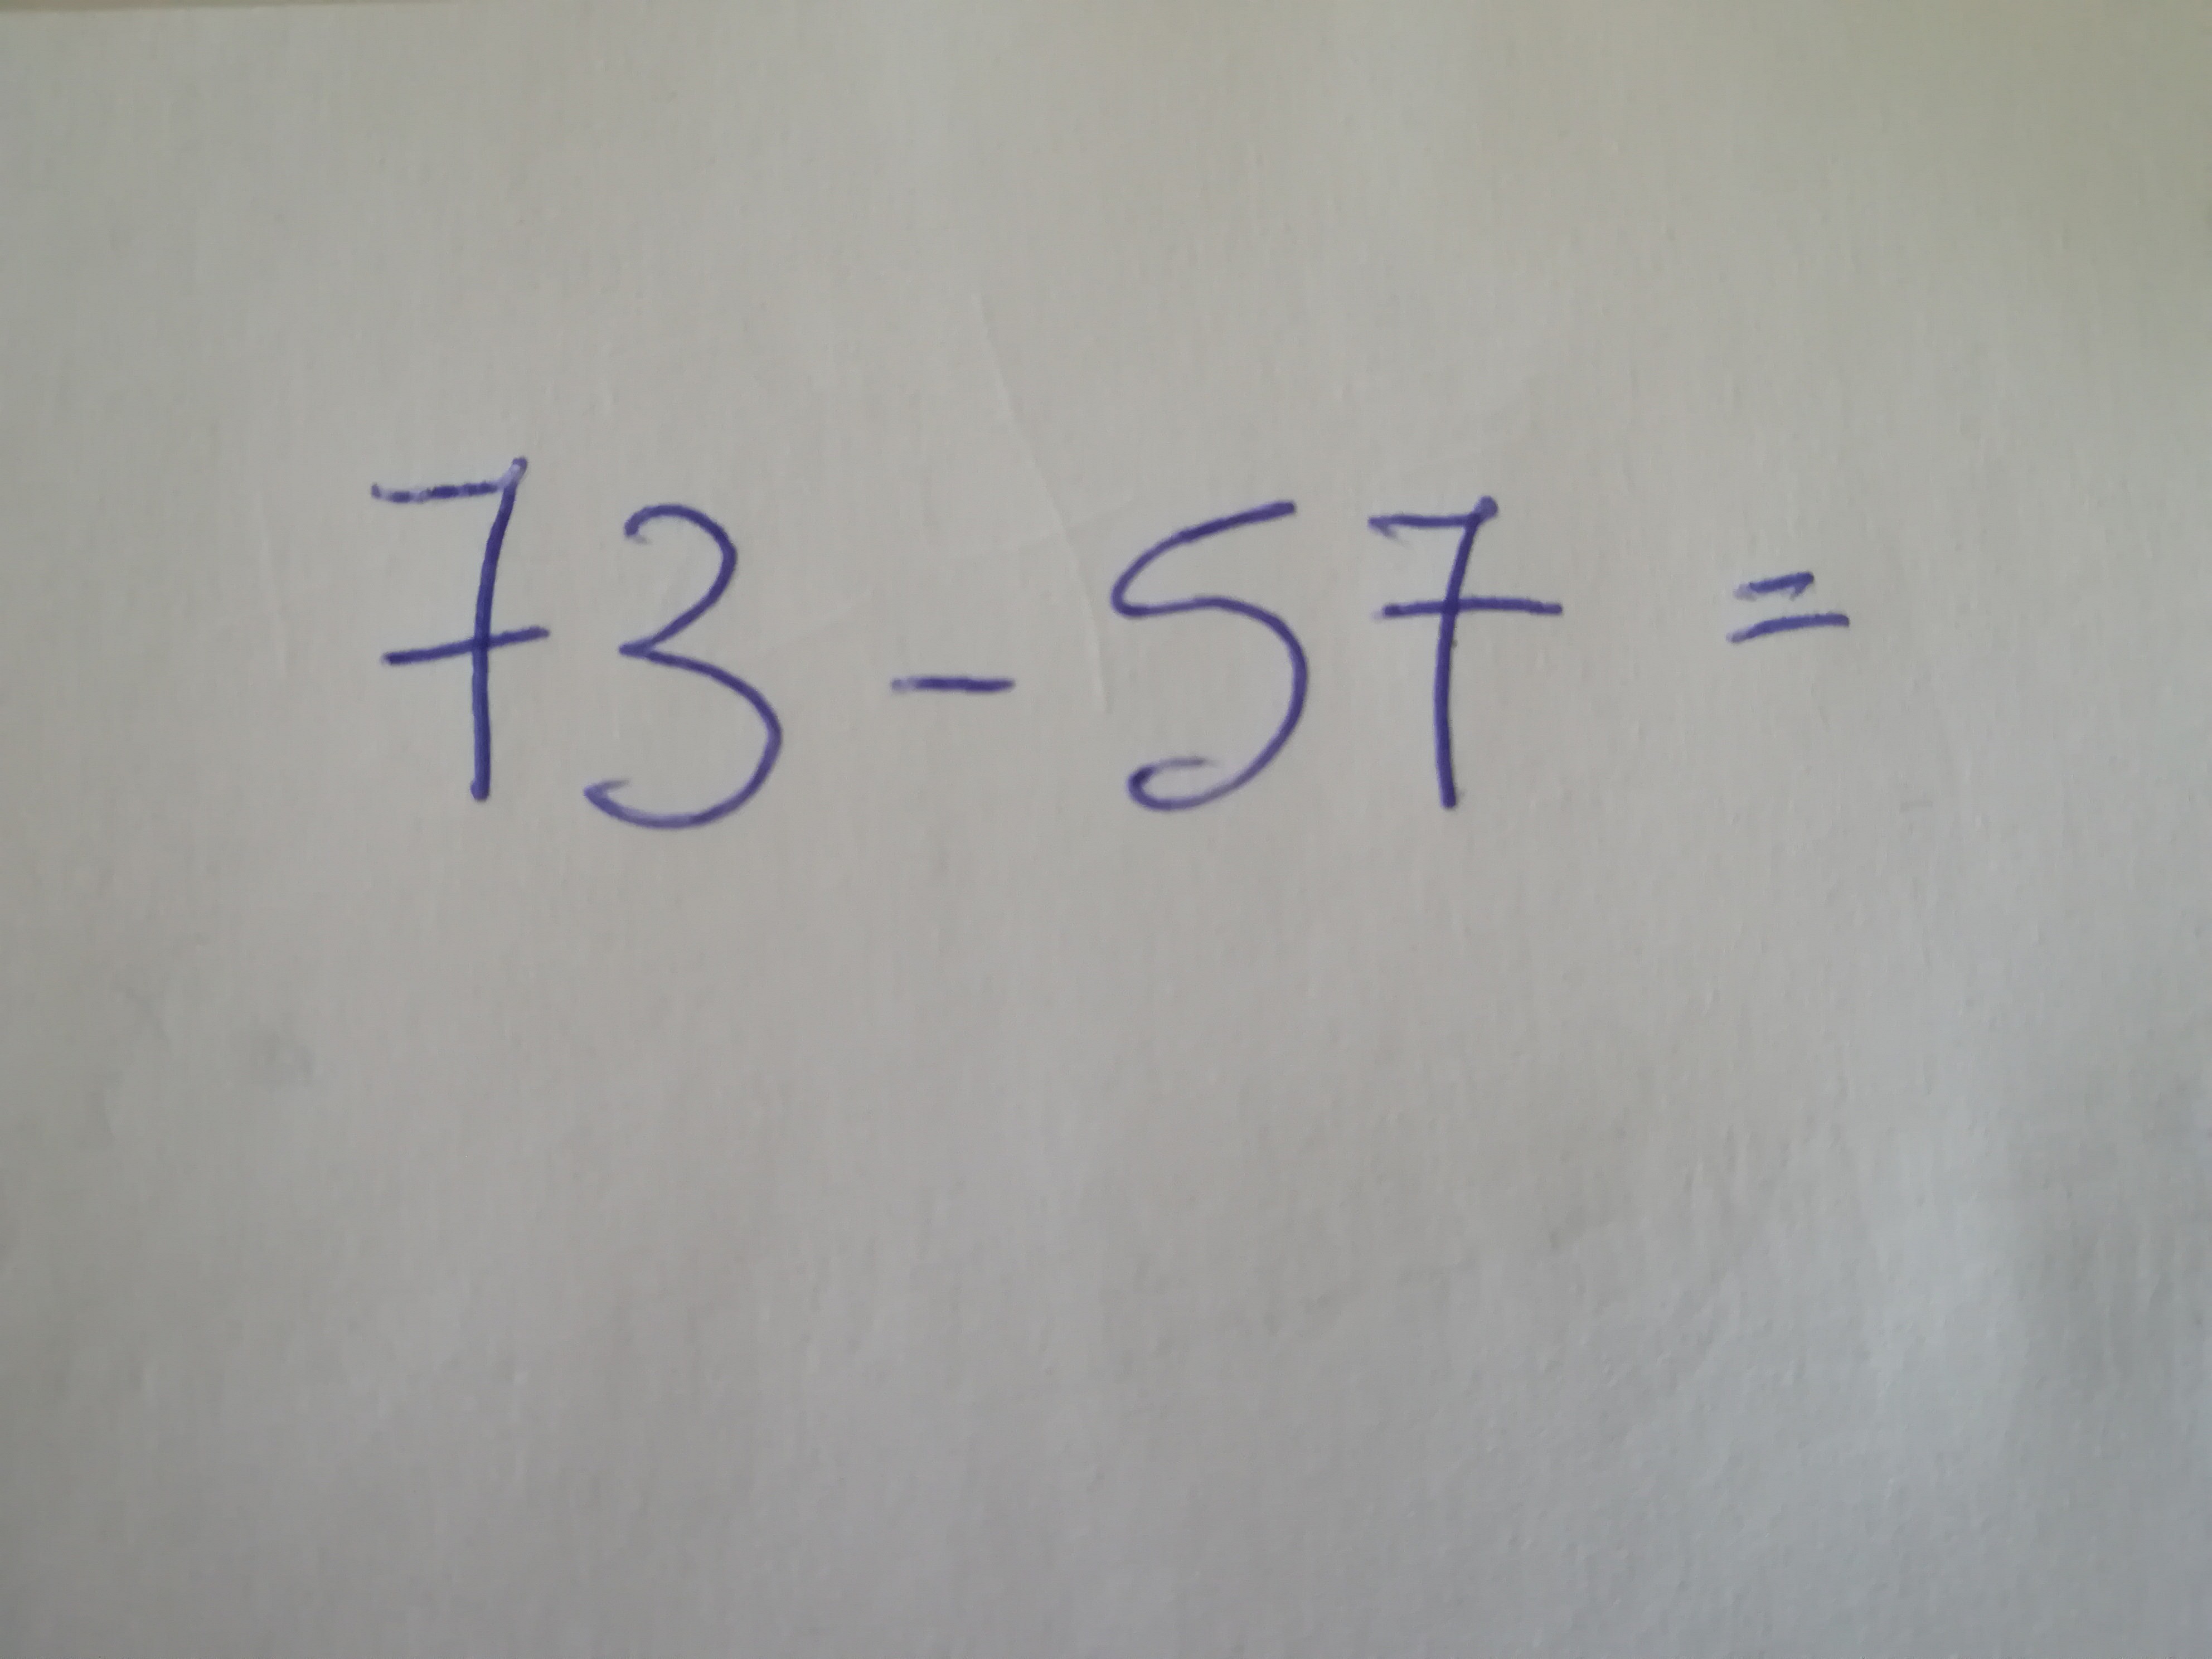 73 - 57 =